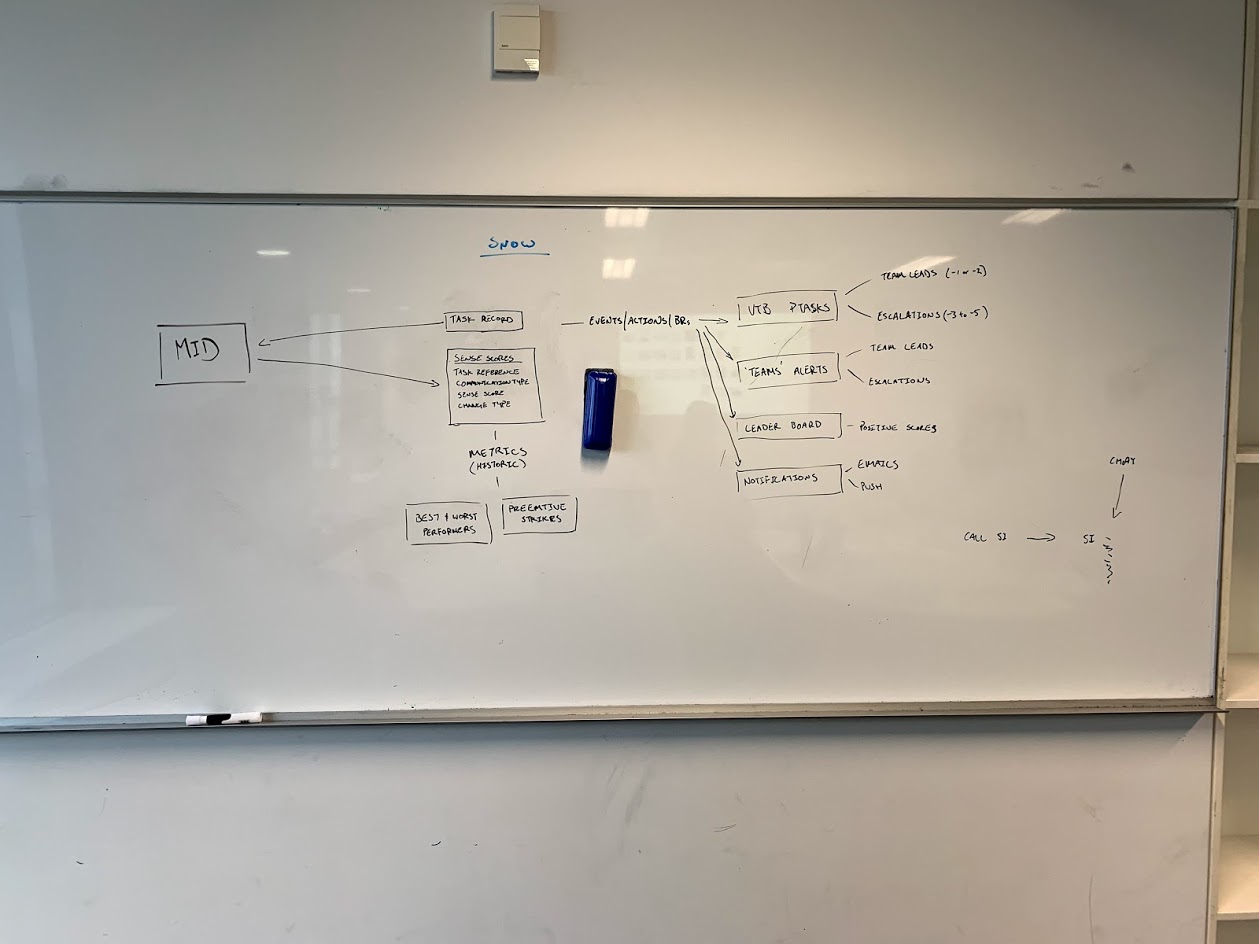 SNOW
MID
TASK RECORD
SENSE SCORES
TASK REFERENCE
COMMUNICATION TYPE
SENSE SCORE
CHANGE TYPE
METRICS
(HISTORIC)
BEST + WORST
PERFORMERS
PREEMTIVE
STRIKES
EVENTS/ACTIONS/BRs
VTB PTASKS
TEAM LEADS (-1 or -2)
ESCALATIONS (-3 to -5)
'TEAMS' ALERTS
TEAM LEADS
ESCALATIONS
LEADER BOARD
POSITIVE SCORES
NOTIFICATIONS
EMAILS
PUSH
CALL SI
SI